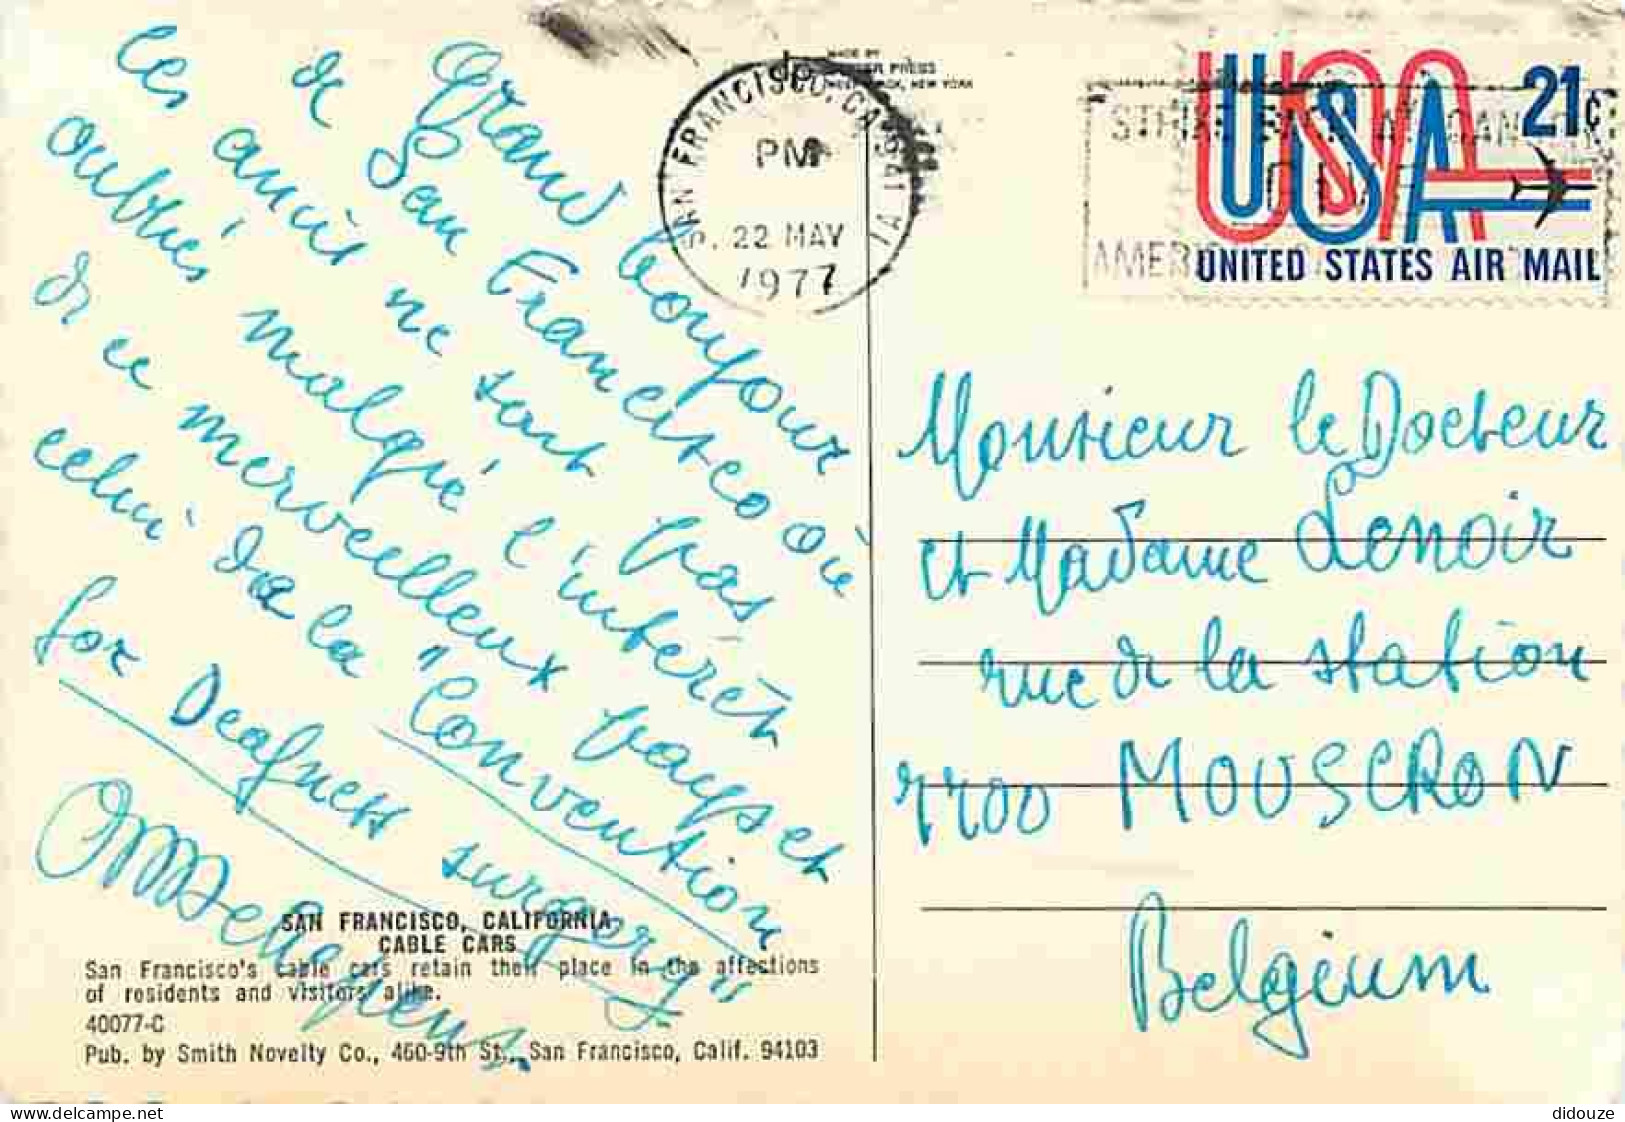 Grand bonjour
de San Francisco où
les amis ne sont pas
oubliés malgré l'intérêt
de ce merveilleux pays et
celui de la "Convention
for Deafness surgery"
SAN FRANCISCO, CALIFORNIA
CABLE CARS
San Francisco's cable cars retain their place in the affections
of residents and visitors alike.
40077-C
Pub. by Smith Novelty Co., 460-9th St., San Francisco, Calif. 94103
MADE BY
PRESS
NEW YORK
SAN FRANCISCO, CA
PM
22 MAY
1977
USA 21c
UNITED STATES AIR MAIL
Monsieur le Docteur
et Madame Lenoir
rue de la station
7700 MOUSCRON
Belgium
delcampe.net
didouze